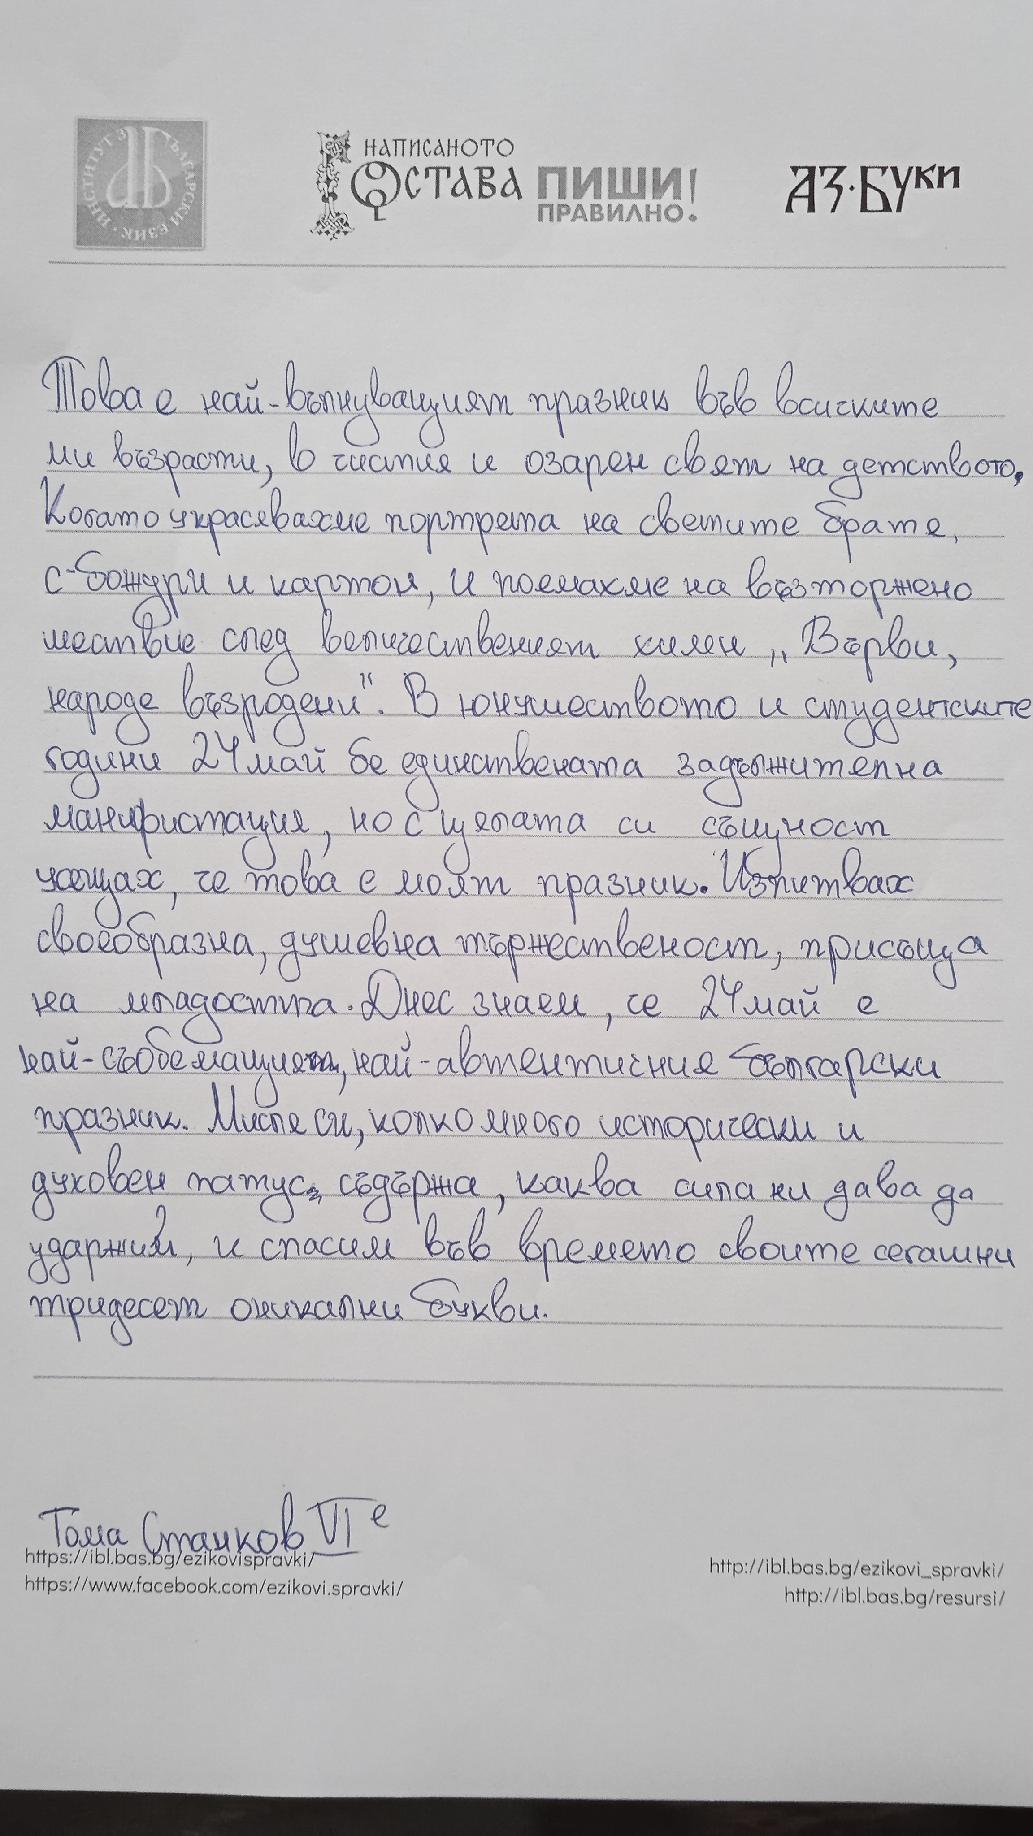 ИНСТИТУТ ЗА БЪЛГАРСКИ ЕЗИК
НАПИСАНОТО
ОСТАВА ПИШИ
ПРАВИЛНО!
АЗ·БУКИ
Това е най-вълнуващият празник във всичките
ми възрасти, в чистия и озарен свят на детството,
Когато украсявахме портрета на светите братя,
с божури и картон, и поемахме на възторжено
шествие след величественият химен „Върви,
народе възродени". В юнушеството и студентските
години 24 май бе единствената задължителна
манифистация, но с цялата си същност
усещах, че това е моят празник. Изпитвах
своеобразна, душевна тържественост, присъща
на младостта. Днес знаем, че 24 май е
най-съобемащият, най-автентичния български
празник. Мисля си, колко много исторически и
духовен патус съдържа, каква сила ни дава да
удържим, и спасим във времето своите сегашни
тридесет оникални букви.
Тома Станков VI е
https://ibl.bas.bg/ezikovispravki/
https://www.facebook.com/ezikovi.spravki/
http://ibl.bas.bg/ezikovi_spravki/
http://ibl.bas.bg/resursi/